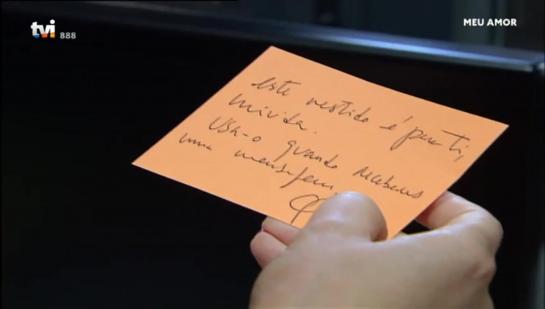 tvi 888
MEU AMOR
este vestido é para ti,
mi vida.
USA-o quando receberes
uma mensagem